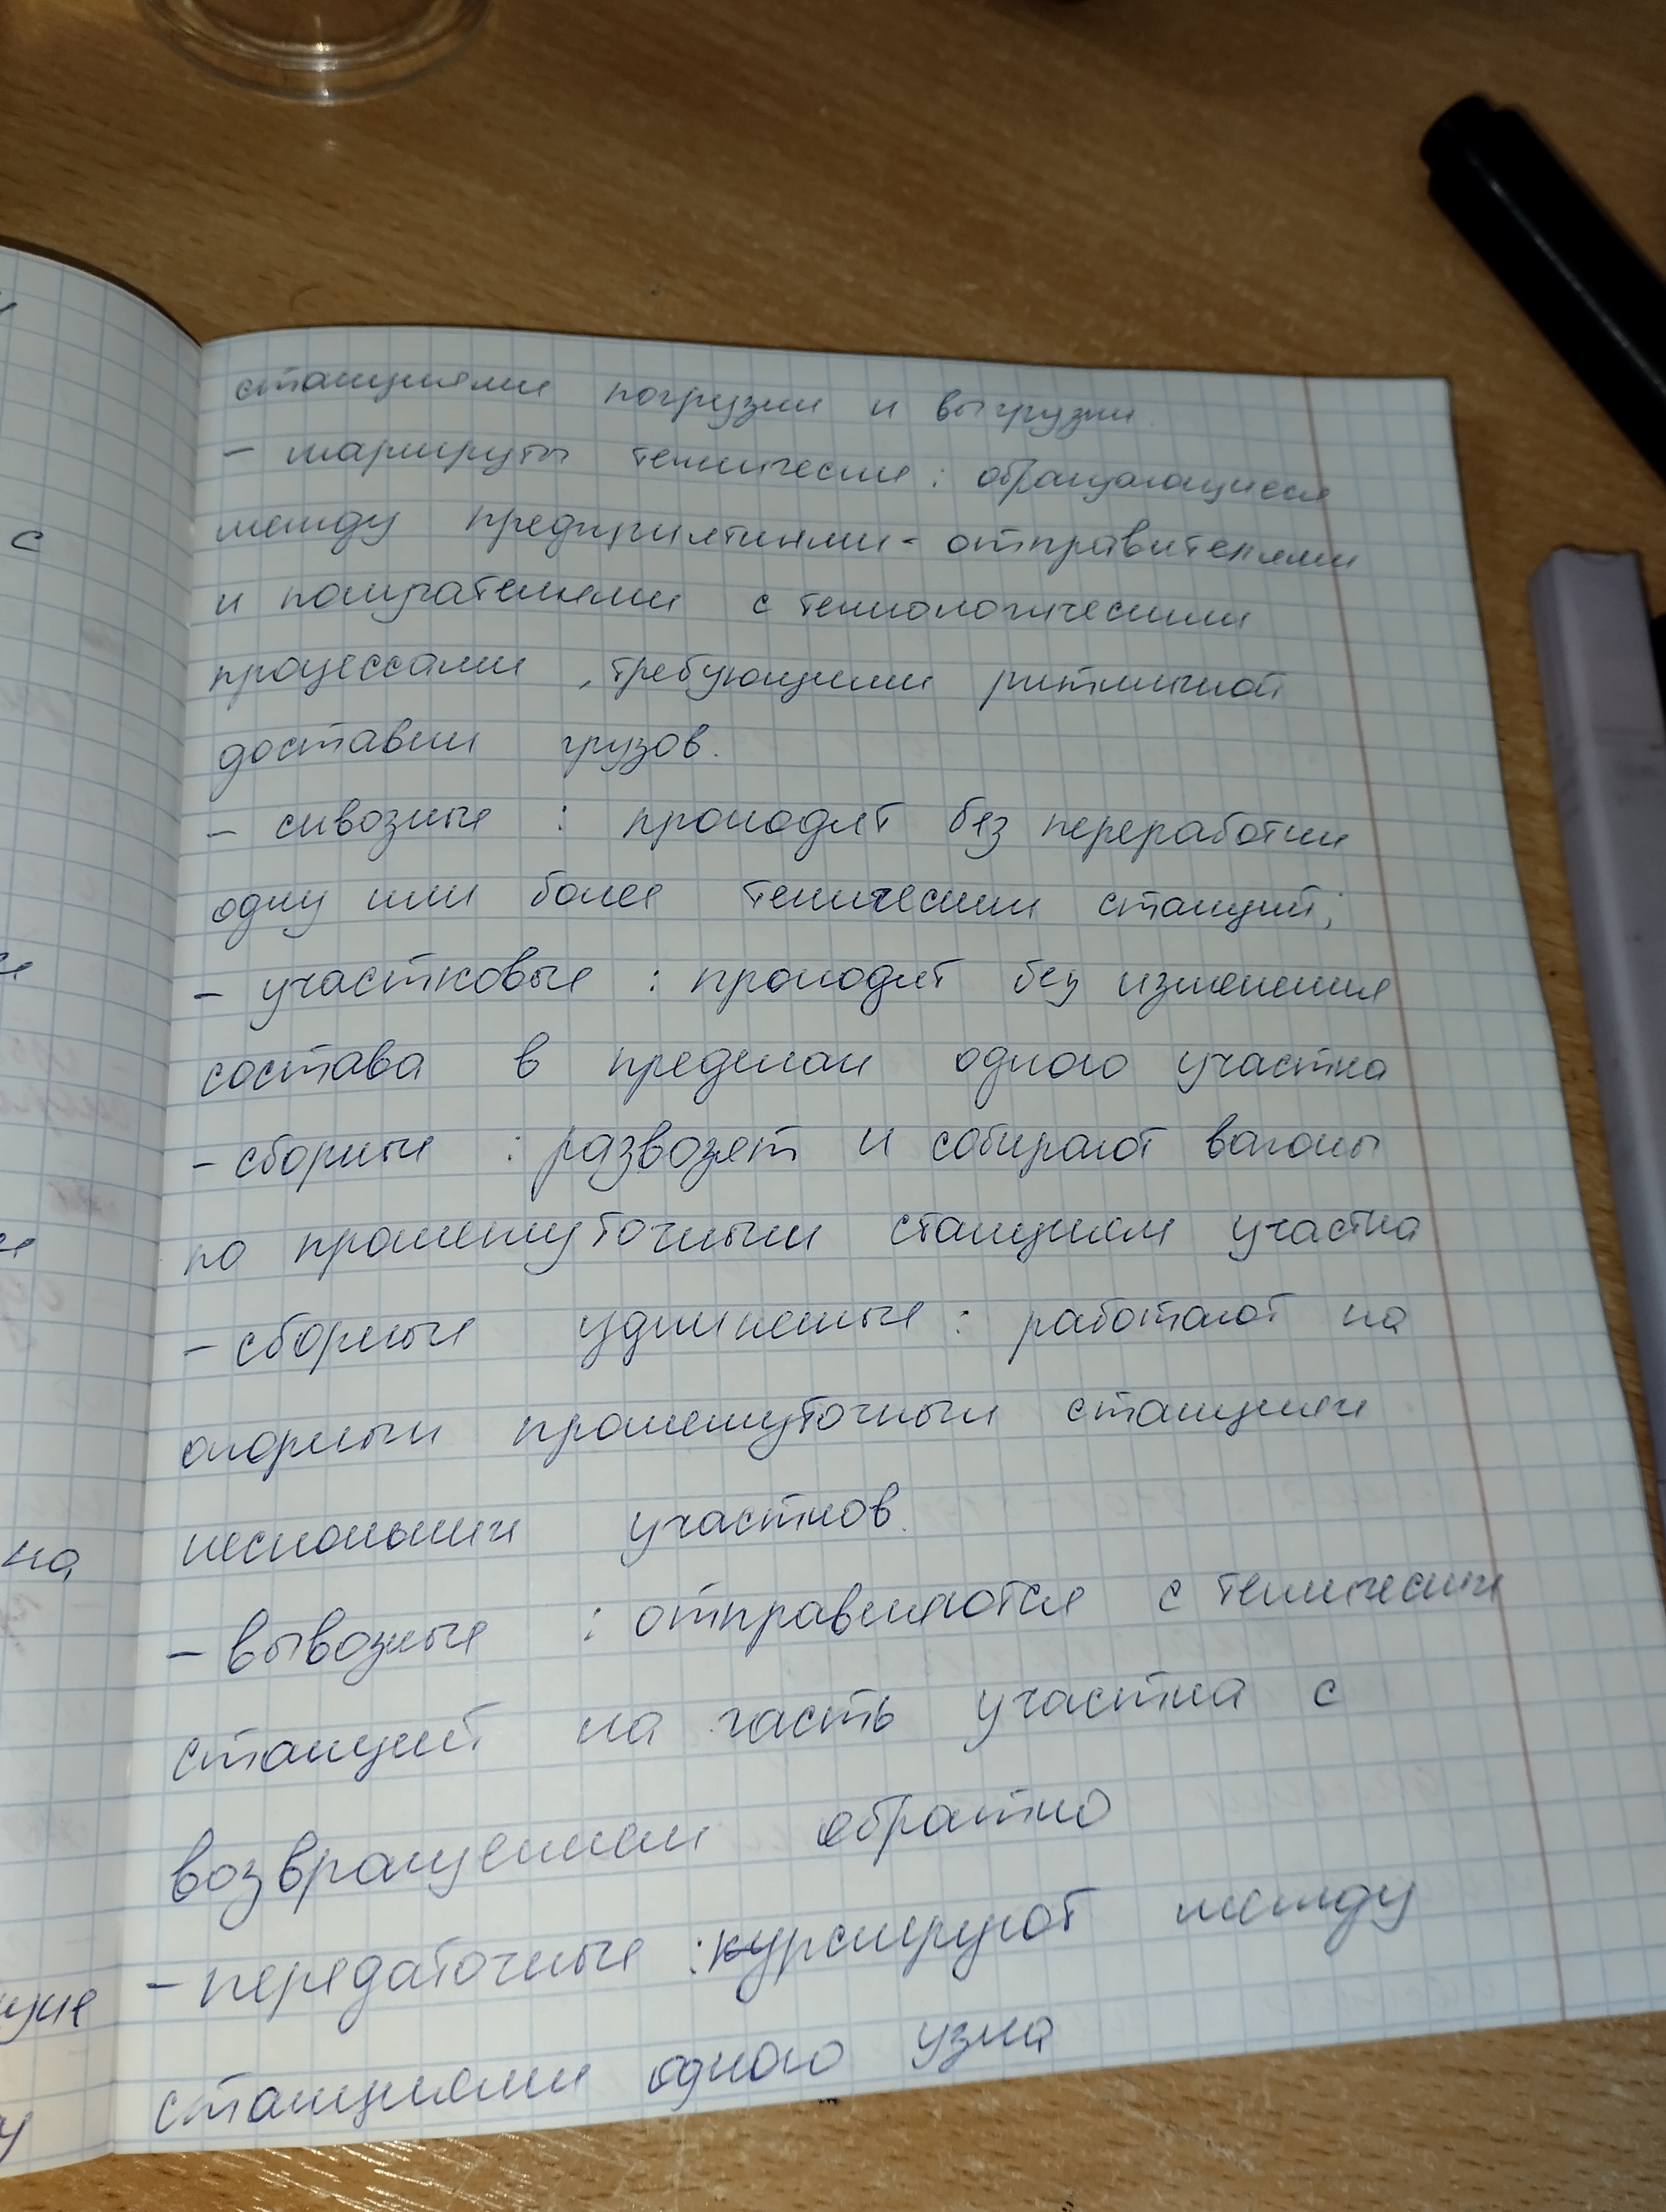 станциями погрузки и выгрузки.
- маршруты технические : обращающиеся
между предприятиями - отправителями
и получателями с технологическими
процессами , требующими ритмичной
доставки грузов.
- сквозные : проходят без переработки
одну или более технических станций;
- участковые : проходят без изменения
состава в пределах одного участка
- сборные : развозят и собирают вагоны
по промежуточным станциям участка
- сборные удлиненые : работают на
опорных промежуточных станциях
нескольких участков.
- вывозные : отправляются с технических
станций на часть участка с
возвращением обратно
- передаточные : курсируют между
станциями одного узла
с
на